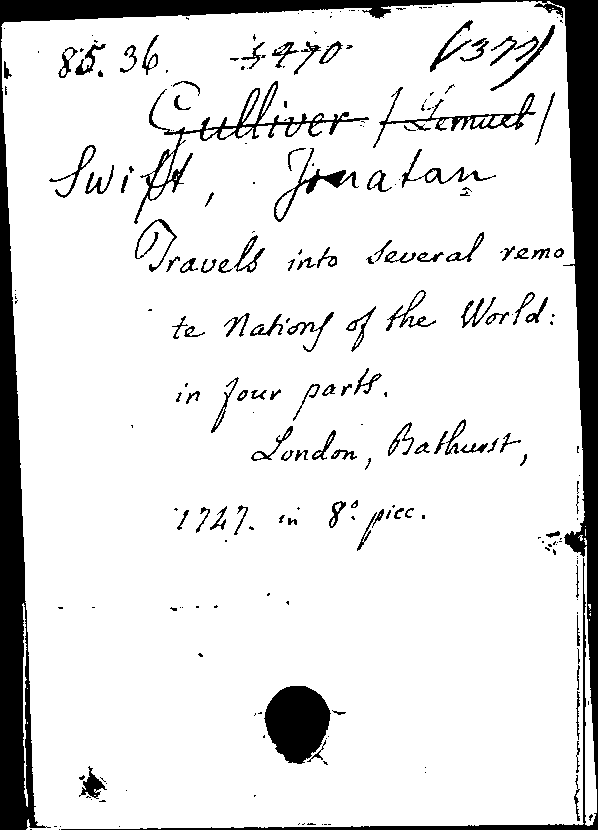 85. 36. 5470 (377)
Gulliver /Lemuel/
Swift, Jonatan
Travels into several remo_
te Nations of the World:
in four parts.
London, Bathurst,
1747. in 8.° picc.